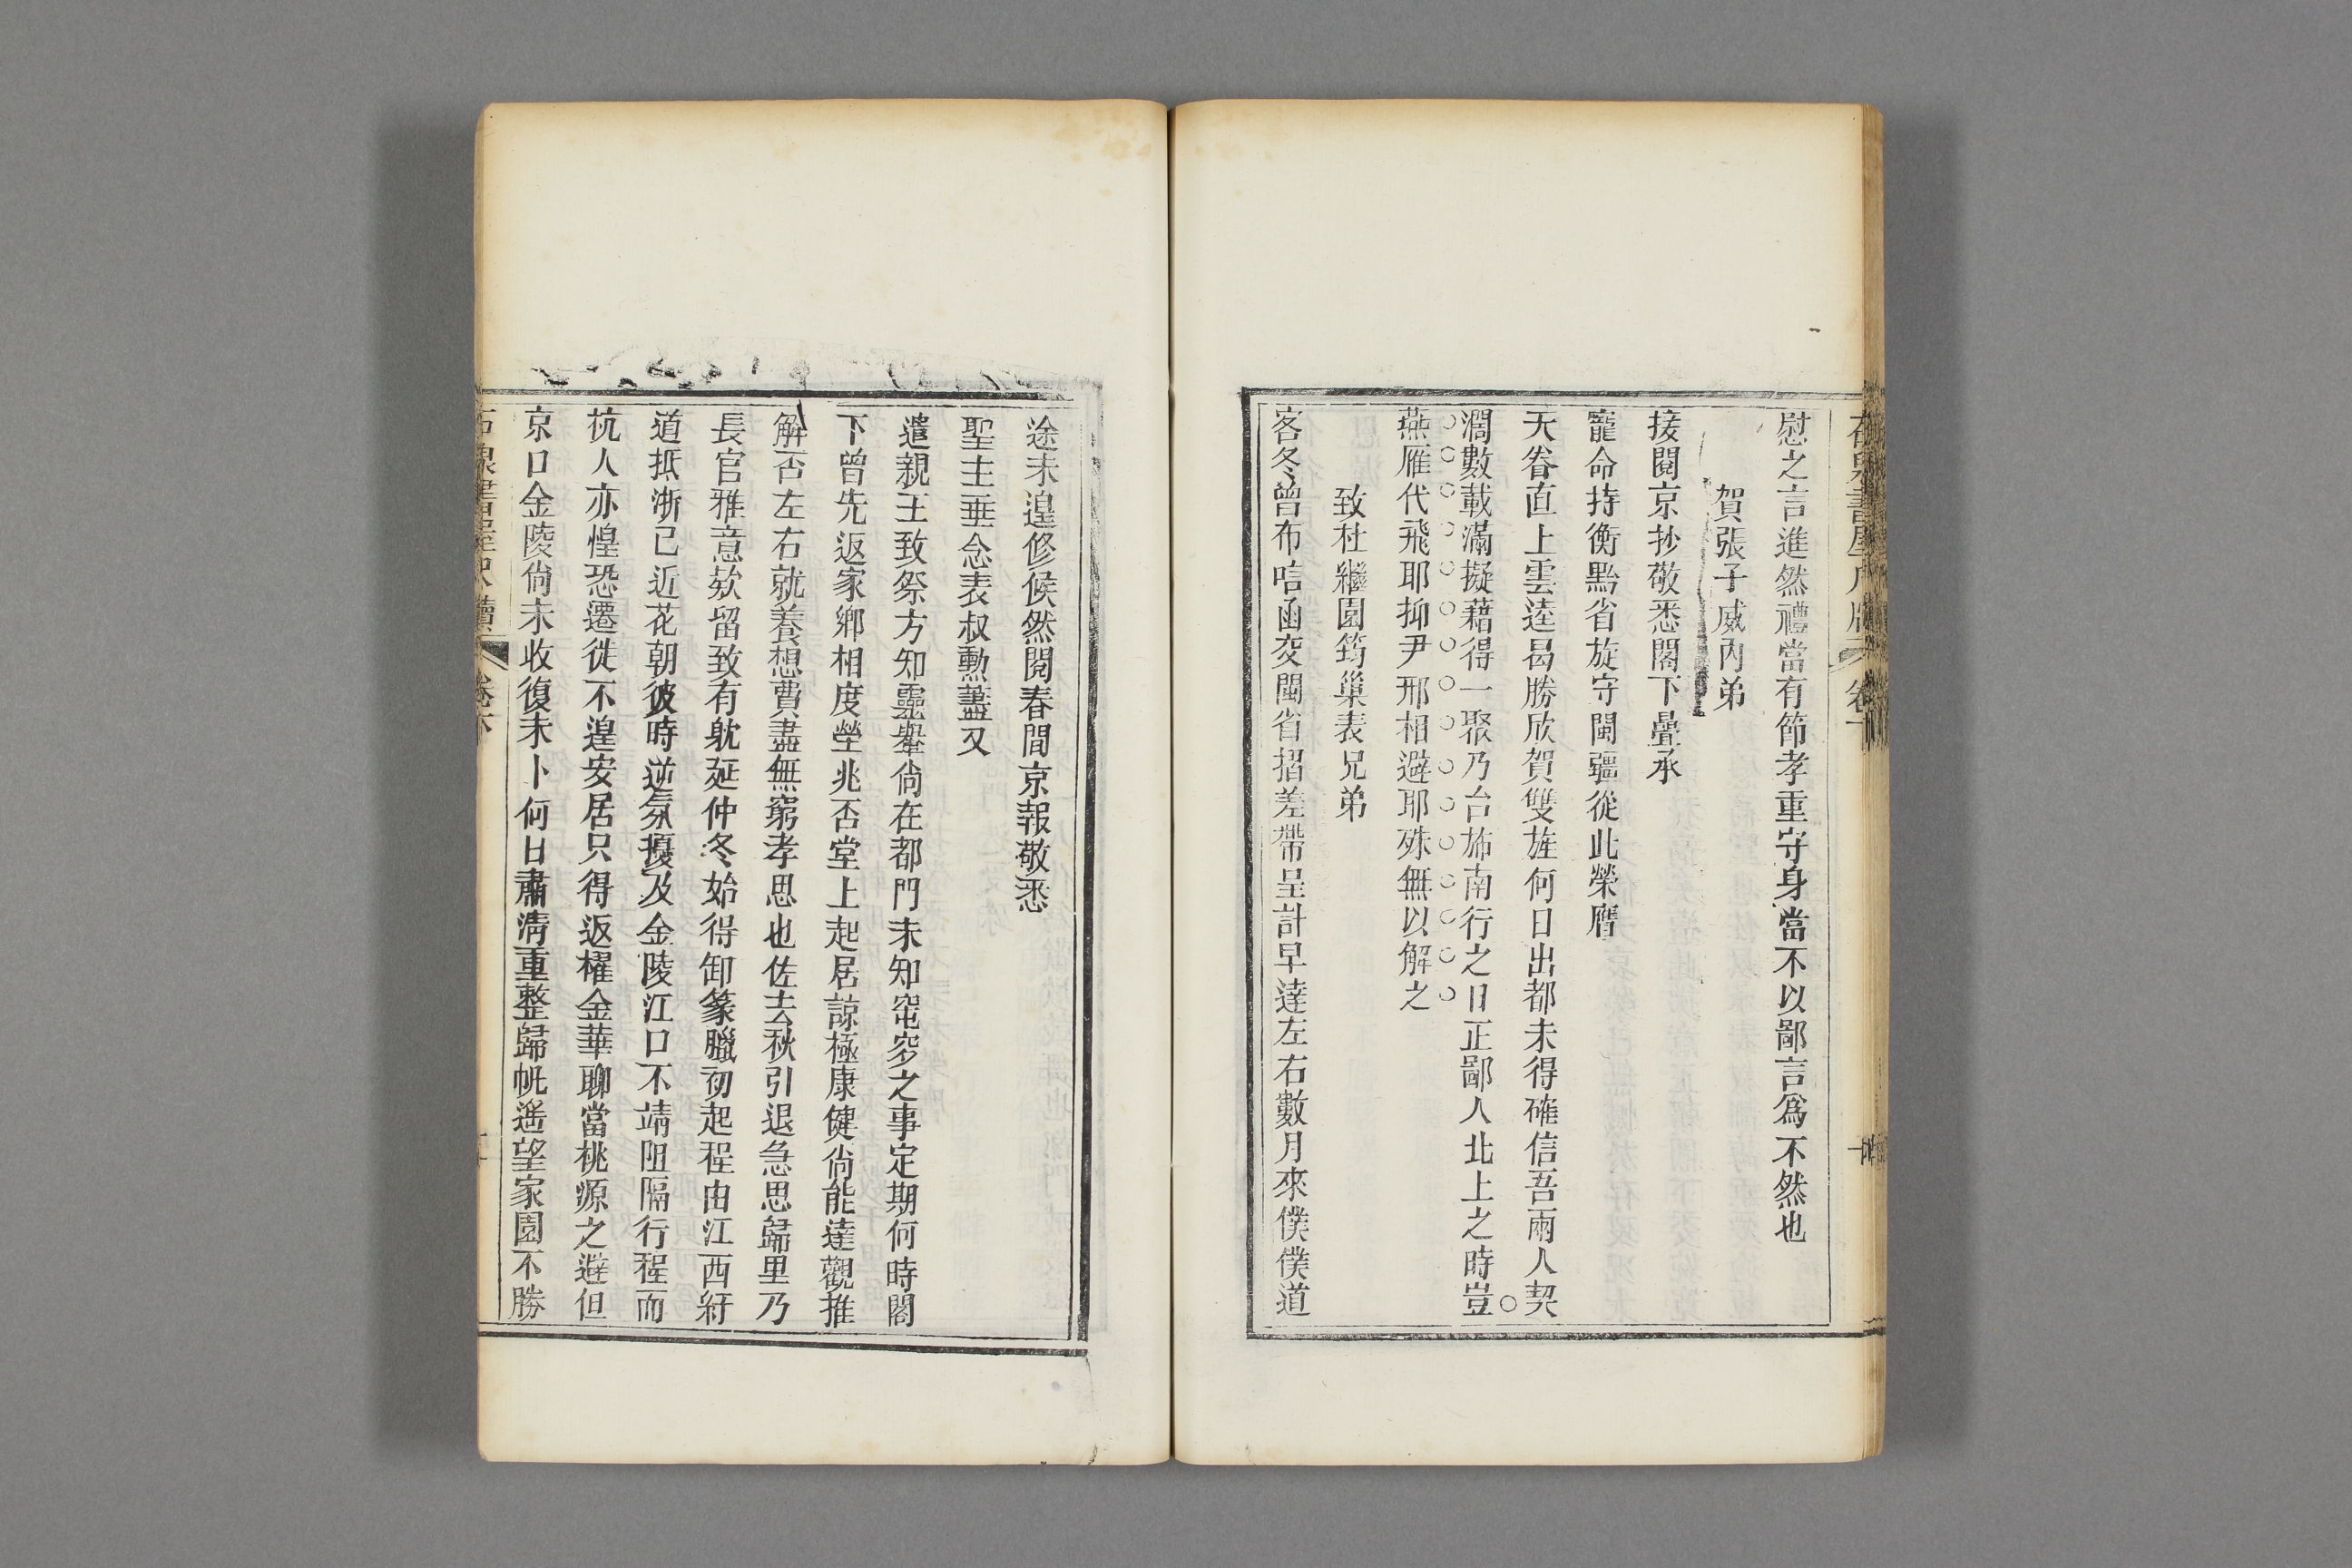 慰之言進然禮當有節孝重守身當不以鄙言爲不然也
賀張子威內弟
接閱京抄敬悉閣下疊承
寵命持衡黔省旋守閩疆從此榮膺
天眷直上雲逵曷勝欣賀雙旌何日出都未得確信吾兩人契
濶數載滿擬藉得一聚乃台斾南行之日正鄙人北上之時豈
燕雁代飛耶抑尹邢相避耶殊無以解之
致杜繼園筠巢表兄弟
客冬曾布唁函交閩省摺差帶呈計早達左右數月來僕僕道
途未遑修候然閱春間京報敬悉
聖主垂念表叔勲藎又
遣親王致祭方知靈轝尙在都門未知窀穸之事定期何時閣
下曾先返家鄉相度塋兆否堂上起居諒極康健尙能達觀推
解否左右就養想費盡無窮孝思也佐去秋引退急思歸里乃
長官雅意欵留致有躭延仲冬始得卸篆臘初起程由江西紆
道抵浙已近花朝彼時逆氛擾及金陵江口不靖阻隔行程而
杭人亦惶恐遷徙不遑安居只得返櫂金華聊當桃源之避但
京口金陵尙未收復未卜何日肅清重整歸帆遙望家園不勝